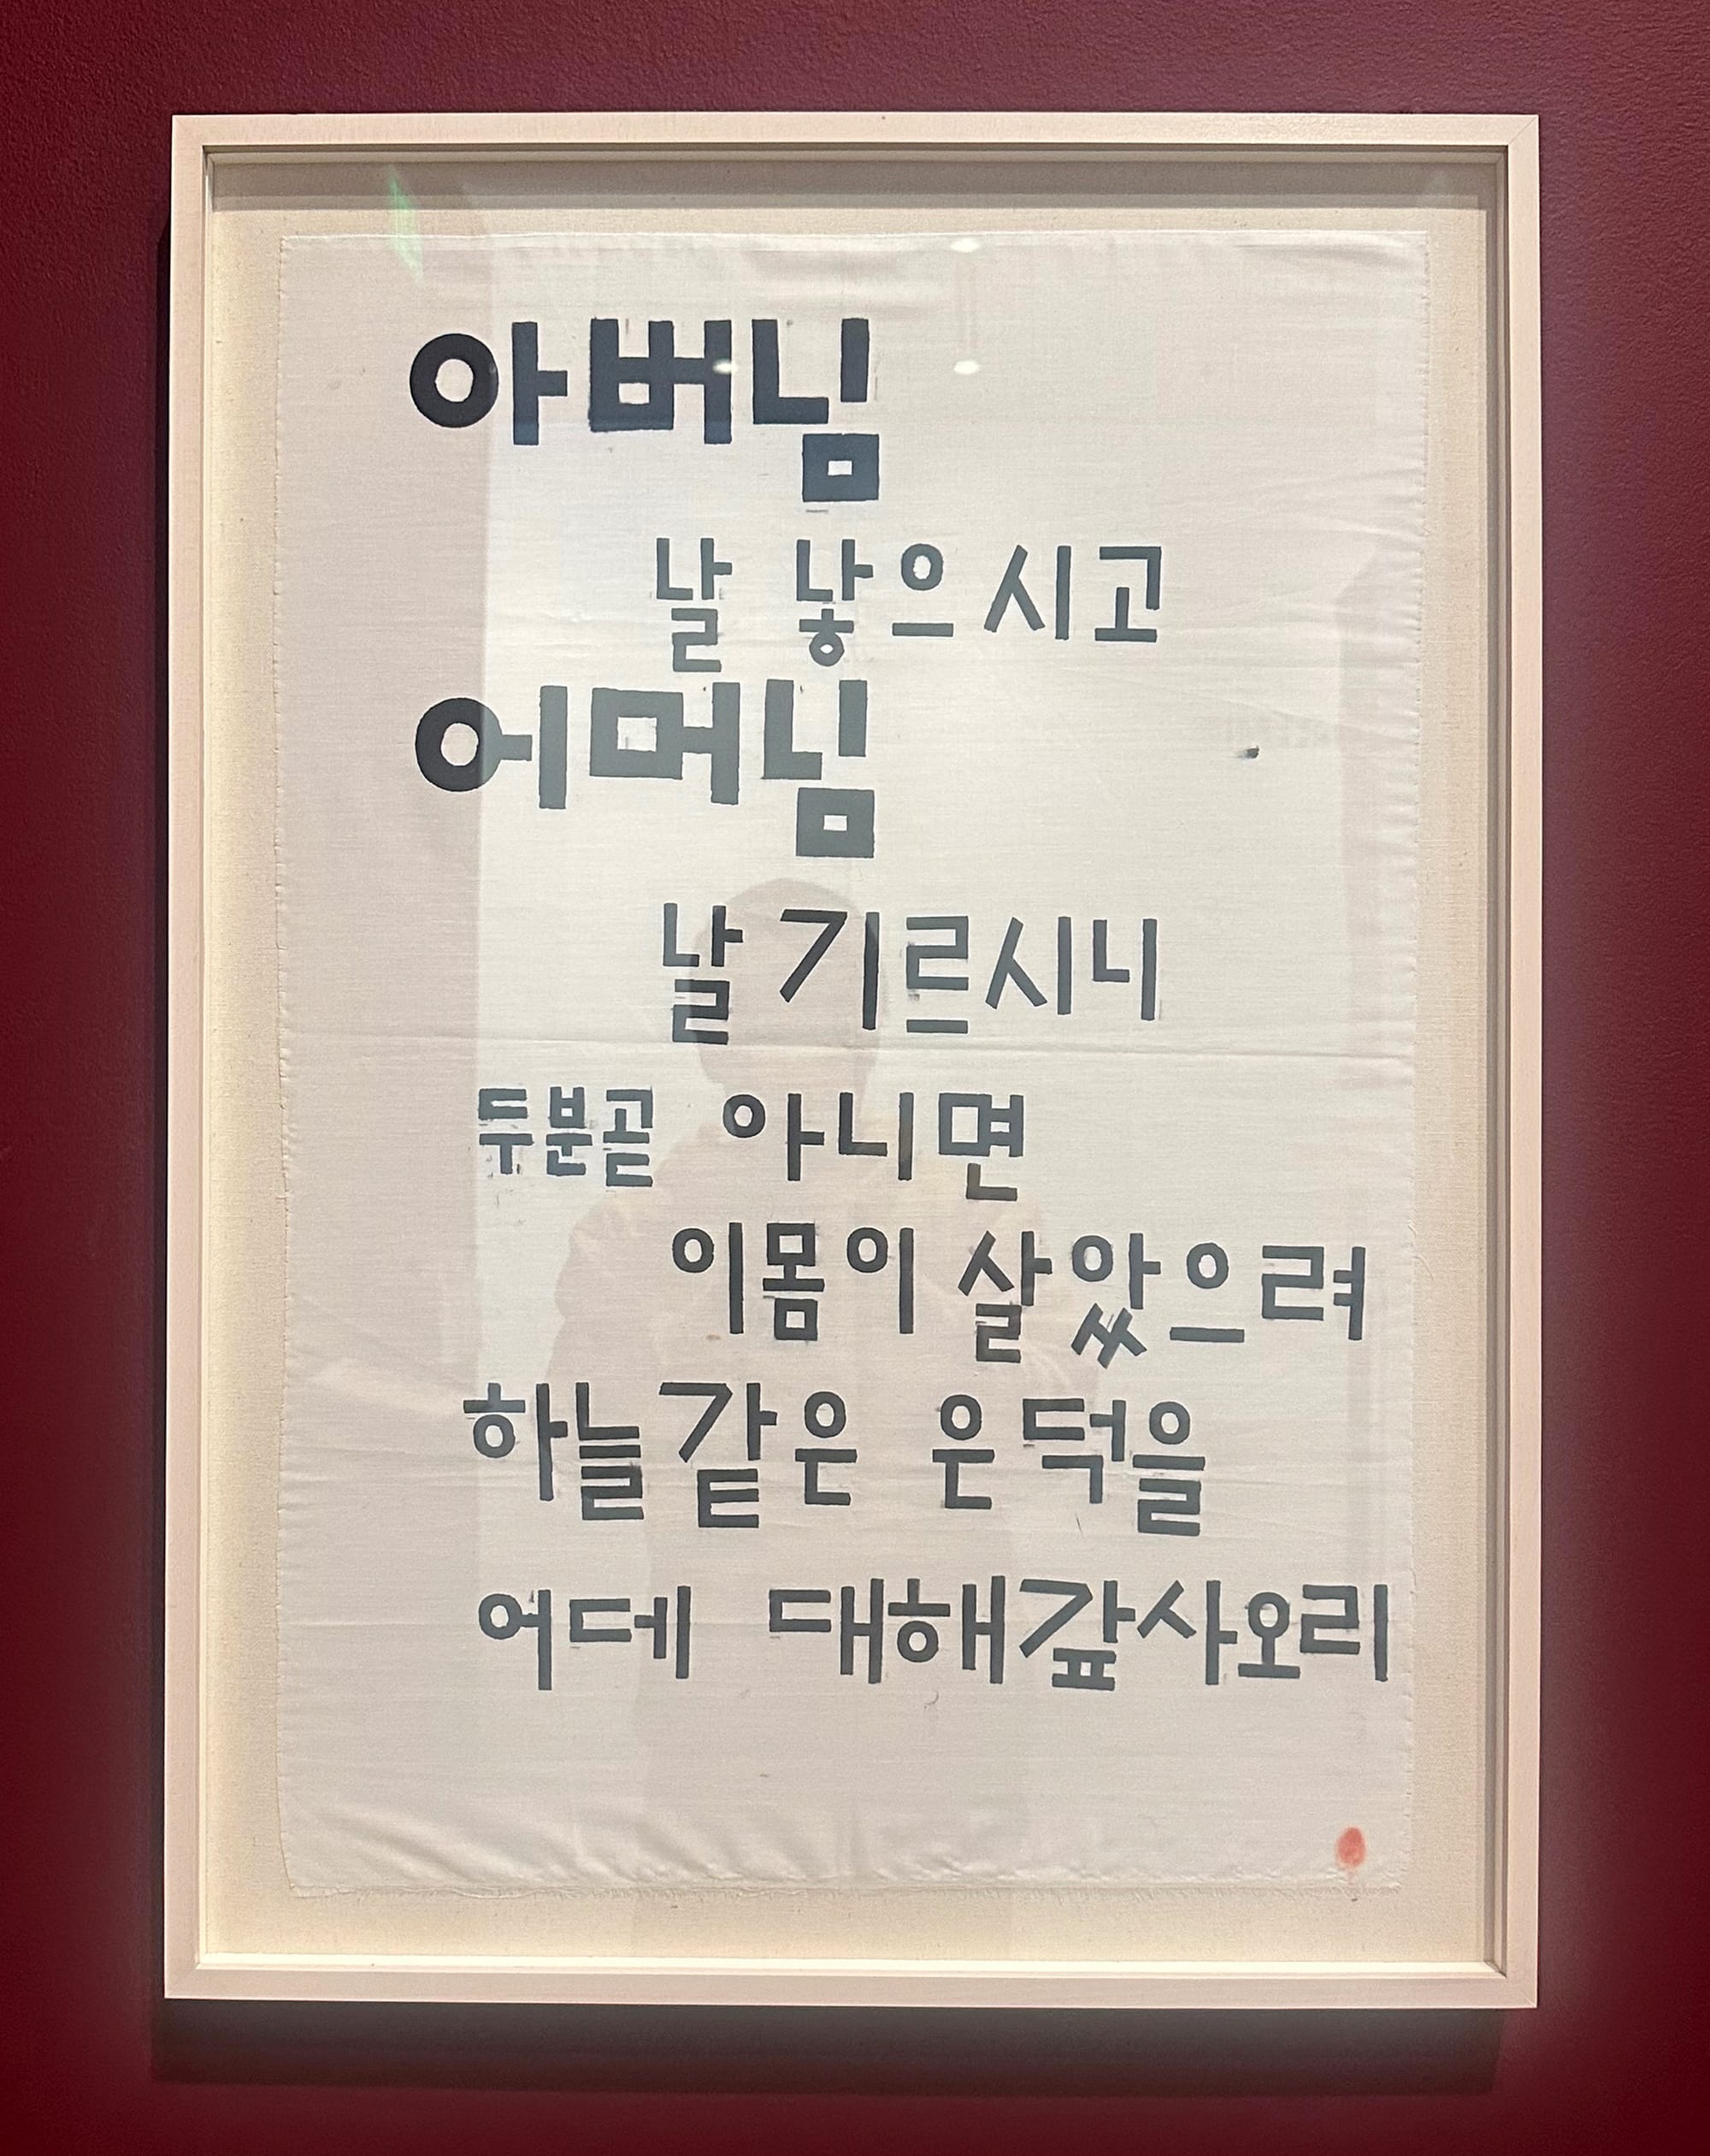 아버님
날 낳으시고
어머님
날 기르시니
두분곧 아니면
이몸이 살았으려
하늘같은 은덕을
어데 대해갚사오리